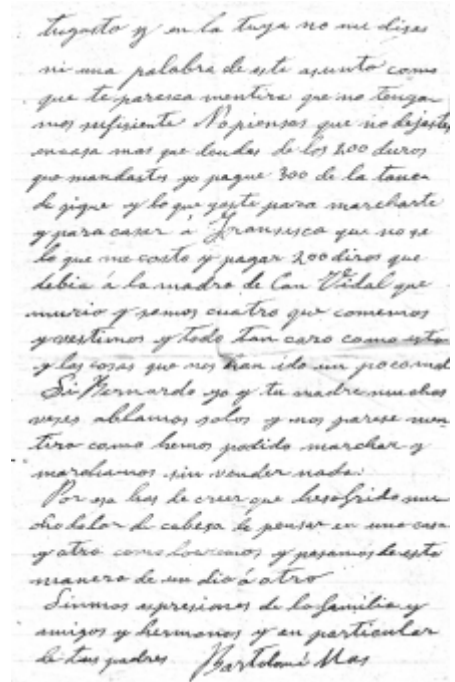 tugasto y en la tuya no me dises
ni una palabra de este asunto como
que te paresca mentira que no tenga
mos sufisiente No piensas que no dejastes
encasa mas que deudas de los 200 duros
que mandastes yo pague 300 de la tanca
de y lo que gaste para marcharte
y para caser á Fransisca que no se
lo que me costo y pagar 200 diros que
debia á la madre de Can Vidal que
murio y somos cuatro que comemos
y vestimos y todo tan caro como esta
y las cosas que nos han ido un poco mal
Si Bernardo yo y tu madre muchas
veses ablamos solos y nos parese men
tira como hemos podido marchar y
marchamos sin vender nada.
Por eso has de creer que he sofrido mu
cho dolor de cabesa de pensar en una cosa
y otra como y pasamos de esta
manera de un dia á otro
expresiones de la familia y
amigos y hermanos y en particular
de tus padres Bartolomé Mas